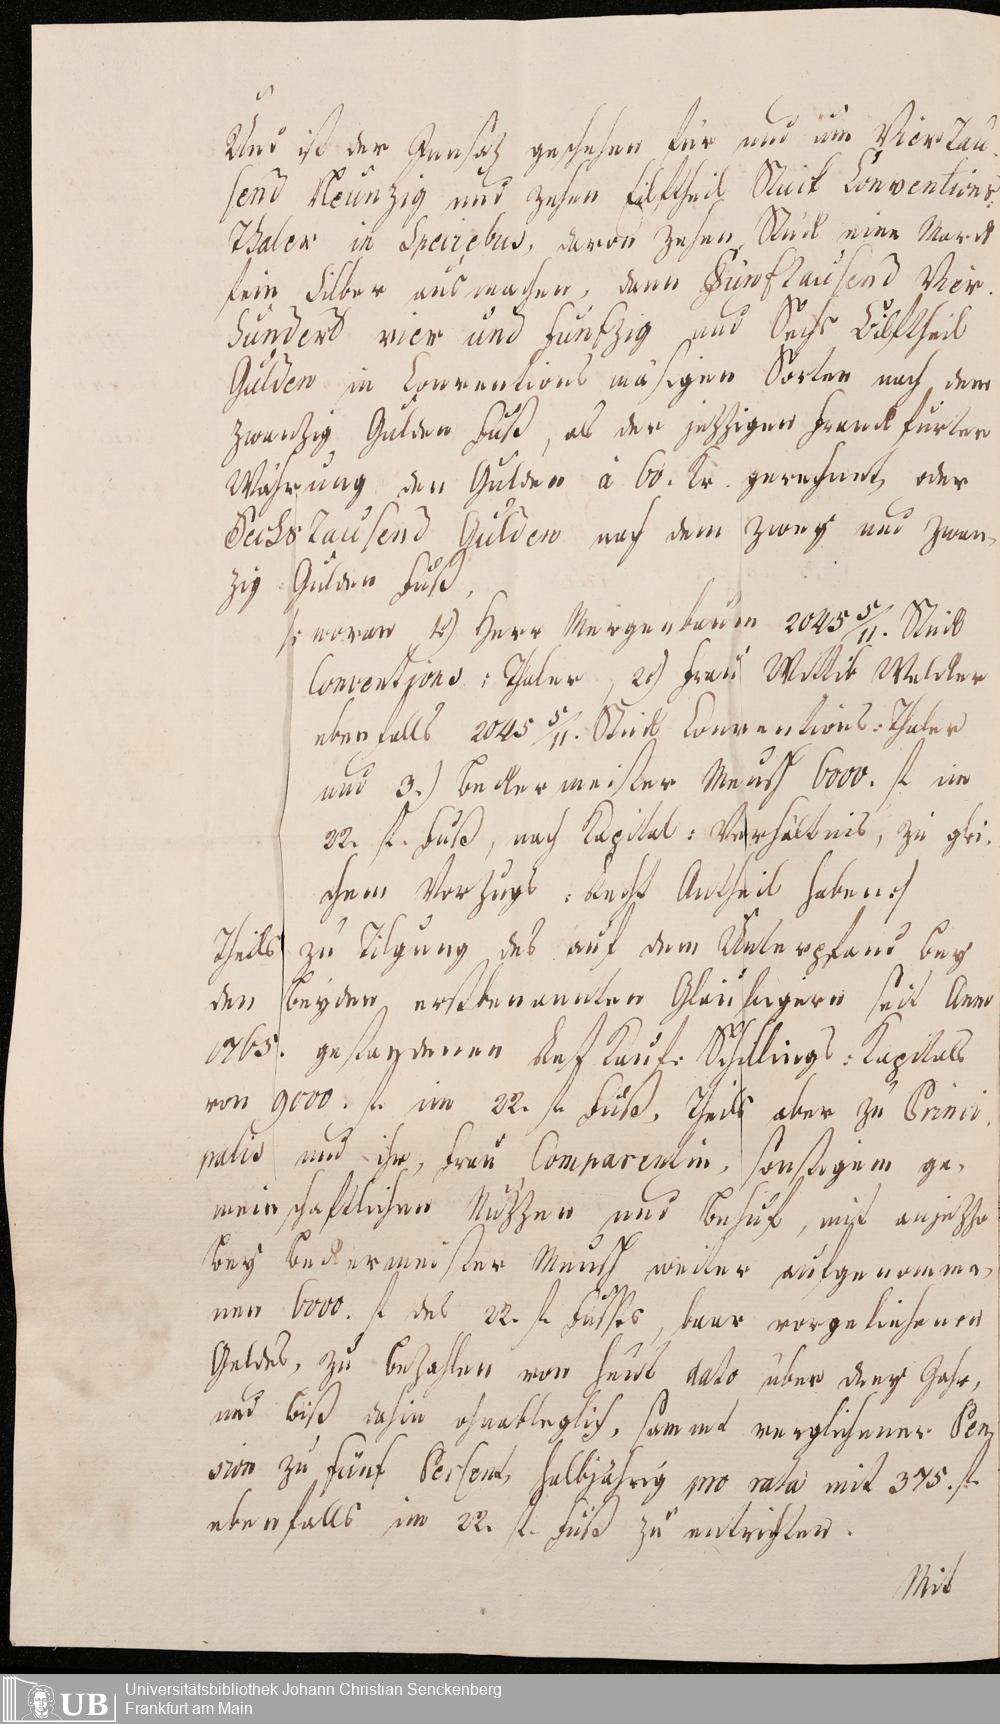 Und ist der Einsaz geschehen für und um Vier Tau-
send Neunzig und zehen Eilftheil Stück Conventions-
Thaler in Speciebus, davon zehen Stück eine Marck
fein Silber ausmachen, dann Fünf Tausend Vier-
hundert vier und Funfzig und Sechs Eilftheil
Gulden in Conventions mäsigen Sorten nach dem
zwanzig Gulden Fuß, als der jezzigen Franckfurter
Währung den Gulden à 60. Kr. gerechnet, oder
Sechs Tausend Gulden nach dem zwey und zwan-
zig Gulden Fuß,
/: woran 1.) Herr Mergenbaum 2045 5/11. Stück
Conventions-Thaler, 2.) Frau Wittib Welcker
ebenfalls 2045 5/11. Stück Conventions-Thaler
und 3.) Beckermeister Meusch 6000. f. im
22. f. Fuß, nach Kapital-Verhältnis, zu glei-
chem Vorzugs-Recht Antheil haben :/
Theils zu Tilgung des auf dem Unterpfand bey
den beyden erstbenannten Gläubigern seit Anno
1765. gestandenen Rest Kauf-Schillings-Kapitals
von 9000. f. im 22. f. Fuß, Theils aber zu Princi-
palis und ihr, Frau Comparentin, sonstigem ge-
meinschaftlichen Nuzzen und Behuf, mit anjezzo
bey Beckermeister Meusch weiter aufgenomme-
nen 6000. f. des 22. f. Fusses, baar vorgeliehenen
Geldes, zu bezahlen von heut dato über drey Jahr,
und biß dahin ohnableglich, sammt verglichener Pen-
sion zu fünf Percent, halbjährig pro rata mit 375. f.
ebenfalls im 22. f. Fuß zu entrichten.
Mit
UB
Universitätsbibliothek Johann Christian Senckenberg
Frankfurt am Main